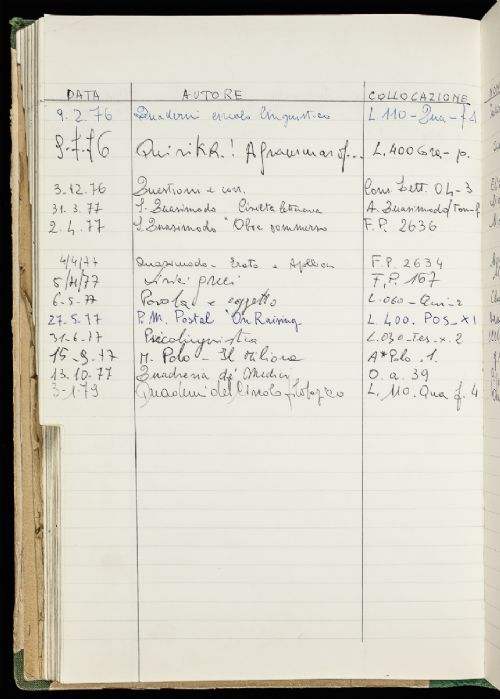 DATA AUTORE COLLOCAZIONE
9.2.76 Quaderni circolo linguistico L 110-Qua-f4
9.7.76 Quirik R.! A grammar of... L.400 Gra-p.
3.12.76 Questioni e con. Cons. Lett. 04-3
31.3.77 S. Quasimodo A. Quasimodo/Tom-f
2.4.77 S. Quasimodo "Oboe sommerso F.P. 2636
4/4/77 Quasimodo - Erato e Apollion F.P. 2634
5/4/77 Lirici greci F.P. 167
6-5-77 Parola e oggetto L.060-Qui-2
27.5.77 P.M. Postal "On Raising L.400. POS-X1
31-6-77 Psicolinguistica L.030-Tes-x.2
15-9-77 M. Polo - Il Milione A*Polo.1.
13.10-77 Quadreria de' Medici O.a.39
3-1-79 Quaderni del Circolo filologico L.110.Qua f.4